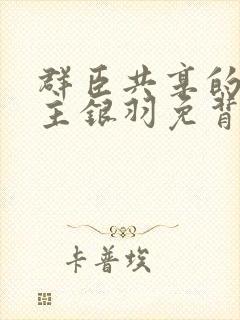 群臣共享的
主银羽免背
卡普埃